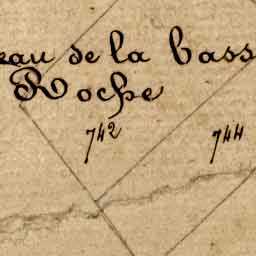 eau de la bass
Roche
742 744